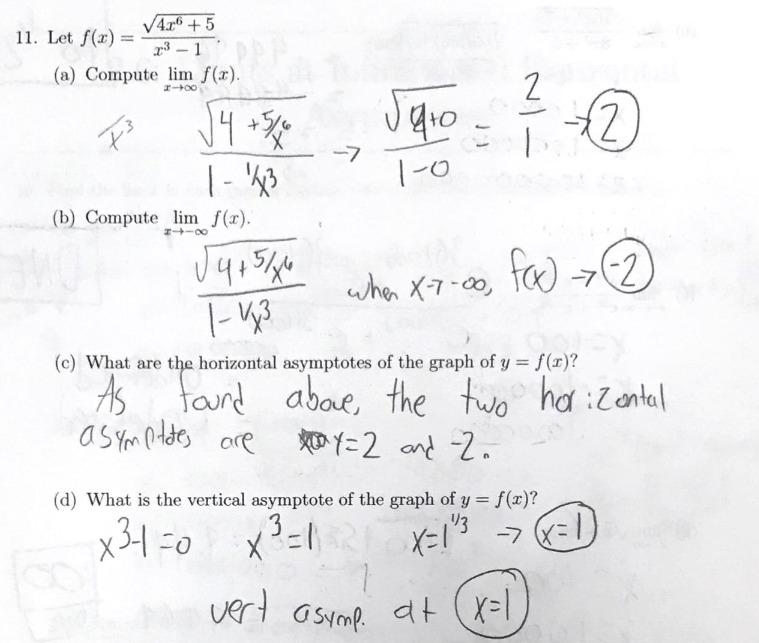 11. Let f(x) = √(4x⁶ + 5) / (x³ - 1).
(a) Compute lim x→∞ f(x).
/x³ √(4 + 5/x⁶) / (1 - 1/x³) → √(4+0) / (1-0) = 2/1 → 2
(b) Compute lim x→-∞ f(x).
√(4 + 5/x⁶) / (1 - 1/x³) when x→-∞, f(x) → -2
(c) What are the horizontal asymptotes of the graph of y = f(x)?
As found above, the two horizontal
asymptotes are y=2 and -2.
(d) What is the vertical asymptote of the graph of y = f(x)?
x³-1=0 x³=1 x=1^(1/3) → x=1
vert asymp. at x=1